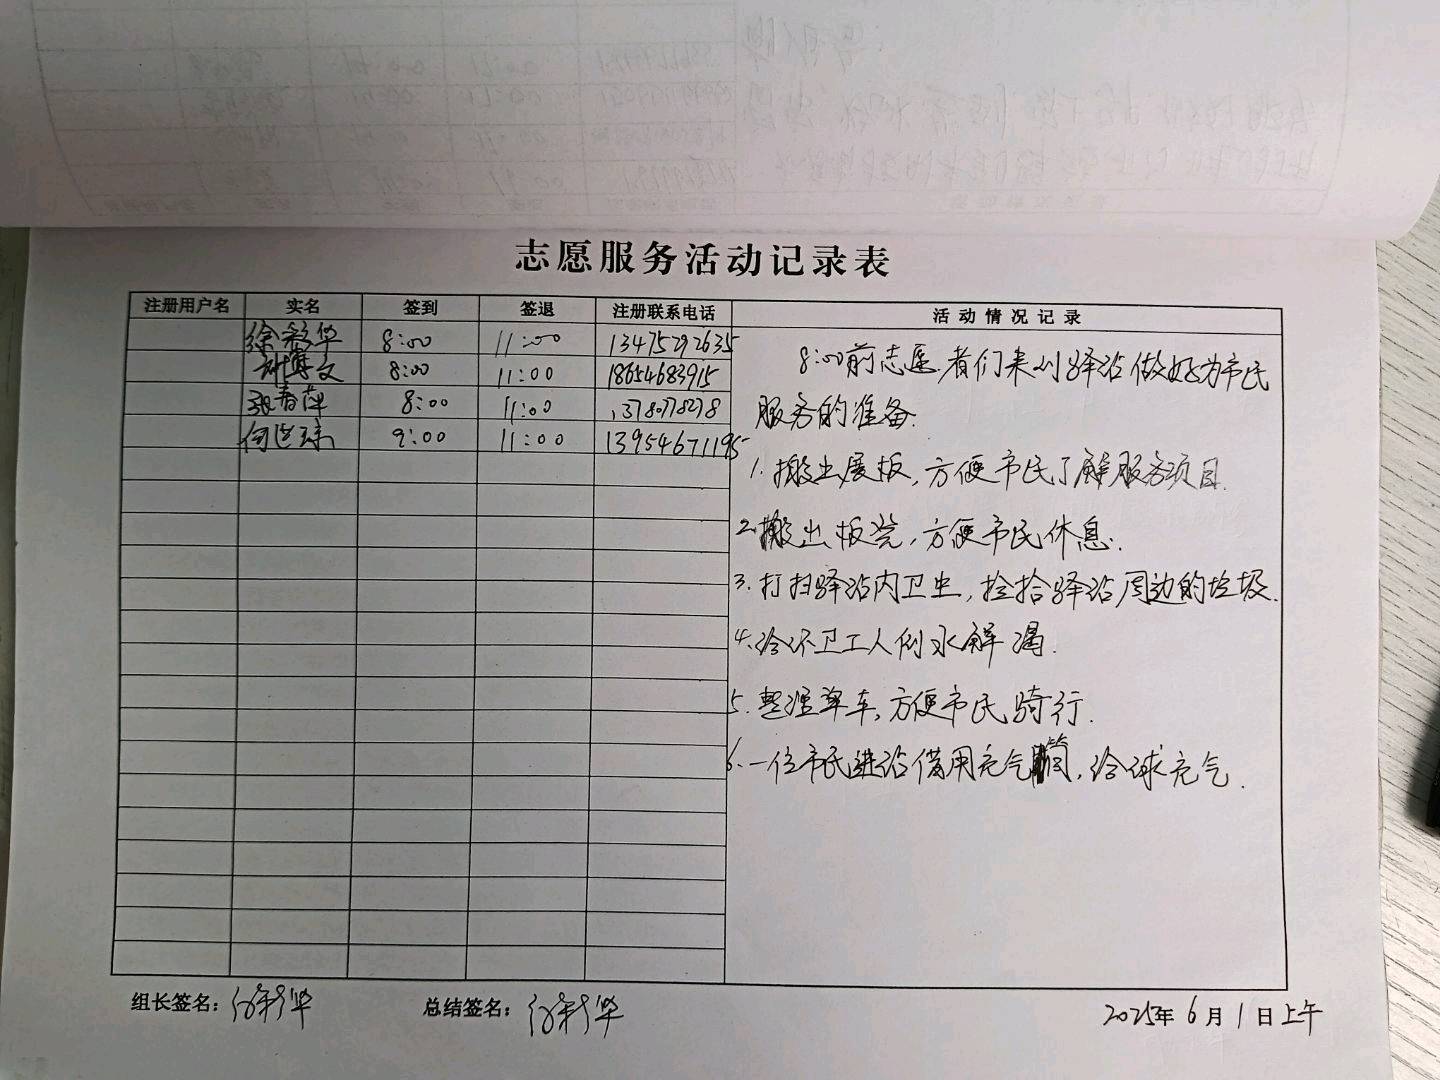 志愿服务活动记录表
注册用户名 实名 签到 签退 注册联系电话 活动情况记录
徐彩华 8:00 11:00 13475292635
博文 8:00 11:00 18654683915
张春萍 8:00 11:00
何洪 9:00 11:00 13954671195
8:00前志愿者们来到驿站做好为市民
服务的准备.
1.搬出展板,方便市民了解服务项目.
2.搬出板凳,方便市民休息.
3.打扫驿站内卫生,捡拾驿站周边的垃圾.
4.给环卫工人倒水解渴.
5.整理单车,方便市民骑行.
6.一位市民进站借用充气筒,给球充气.
组长签名:徐彩华 总结签名:徐彩华 2025年6月1日上午